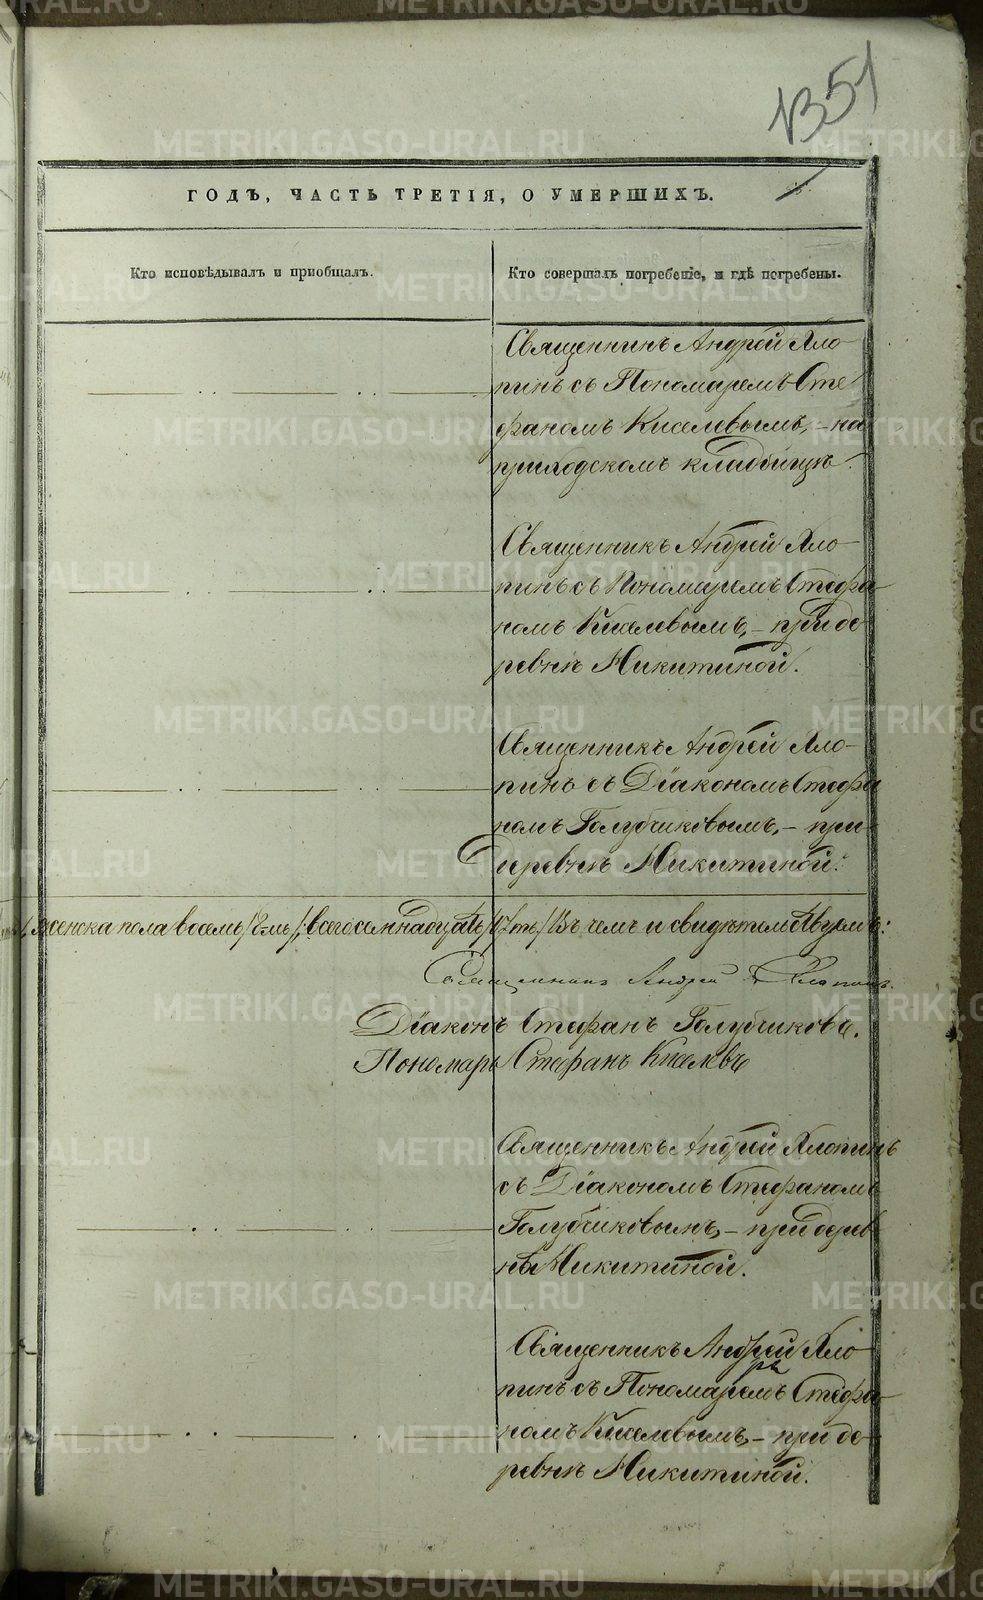 1351
ГОДЪ, ЧАСТЬ ТРЕТІЯ, О УМЕРШИХЪ.
Кто исповѣдывалъ и пріобщалъ.
Кто совершалъ погребеніе, и гдѣ погребены.
Священникъ Андрей Хло-
пинъ съ Пономаремъ Сте
фаномъ Киселевымъ, – на
приходскомъ кладбищѣ.
Священникъ Андрей Хло-
пинъ съ Пономаремъ Стефа-
номъ Киселевымъ, – при де
ревнѣ Никитиной.
Священникъ Андрей Хло-
пинъ съ Діакономъ Стефа
номъ Голубчиковымъ, – при
деревнѣ Никитиной.
женска пола восемь /8мь/; всего семнадцать /17ть/ Въ чемъ и свидѣтельствуемъ:
Священникъ Андрей Хлопинъ.
Діаконъ Стефанъ Голубчиковъ.
Пономарь Стефанъ Киселевъ
Священникъ Андрей Хлопинъ
съ Діакономъ Стефаномъ
Голубчиковымъ, – при дерев
нѣ Никитиной.
Священникъ Андрей Хло-
пинъ съ Пономаремъ Стефа-
номъ Киселевымъ, – при де-
ревнѣ Никитиной.
METRIKI.GASO-URAL.RU